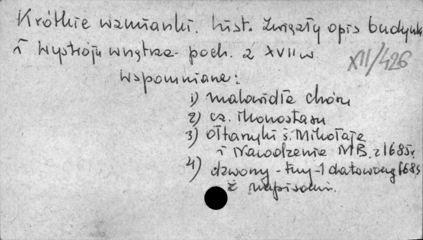 Krótkie wzmianki hist. Zwięzły opis budynku
i wystroju wnętrza. poch. z XVII w.
XII/426
Wspomniane:
1) malowidła chóru
2) cz. ikonostasu
3) ołtarzyki ś. Mikołaja
i Narodzenie MB. z 1685 r.
4) dzwony - trzy - 1 datowany 1685
z napisami.